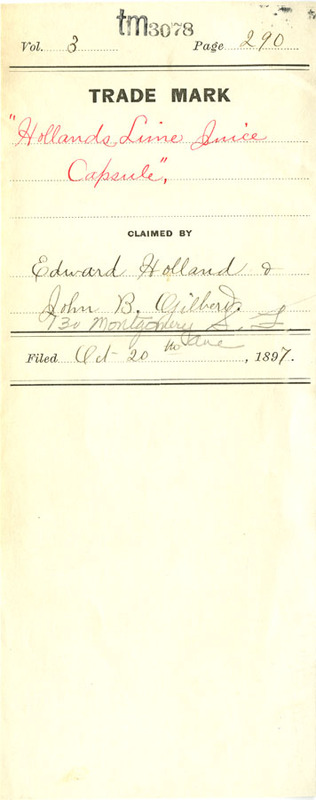 tm3078
Vol. 3 Page 290
TRADE MARK
"Hollands Lime Juice
Capsule",
CLAIMED BY
Edward Holland &
John B. Gilberd.
730 Montgomery S. F
Filed Oct 20 , 1897.
ave